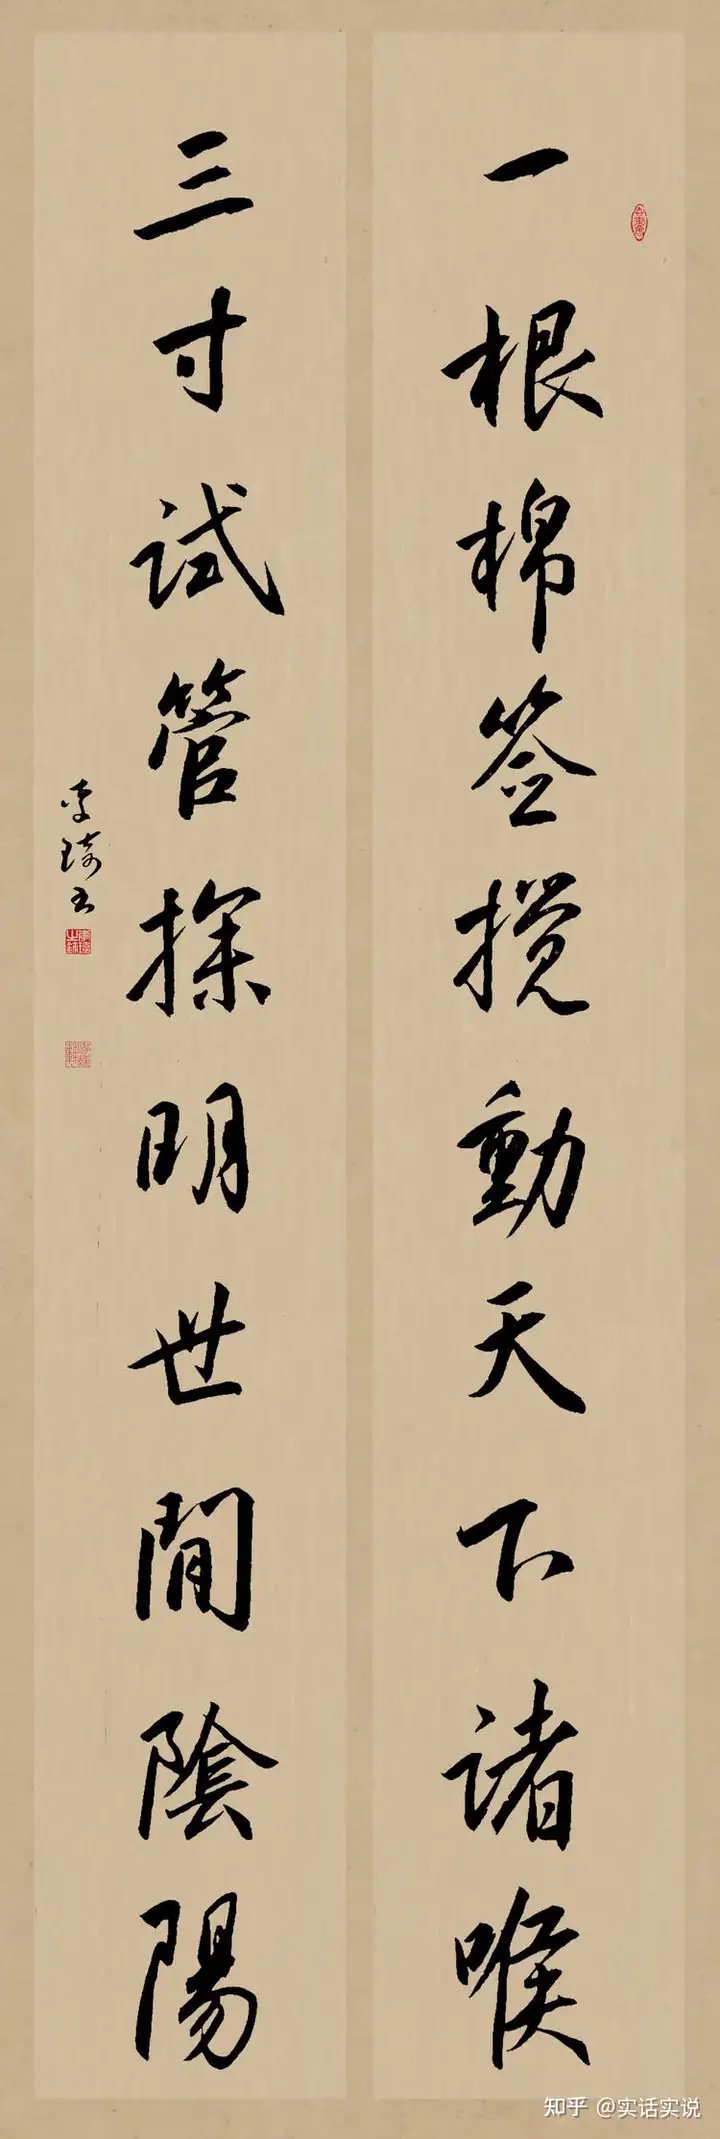 一根棉签搅動天下诸喉
三寸试管探明世間陰陽
李琦书
知乎 @实话实说